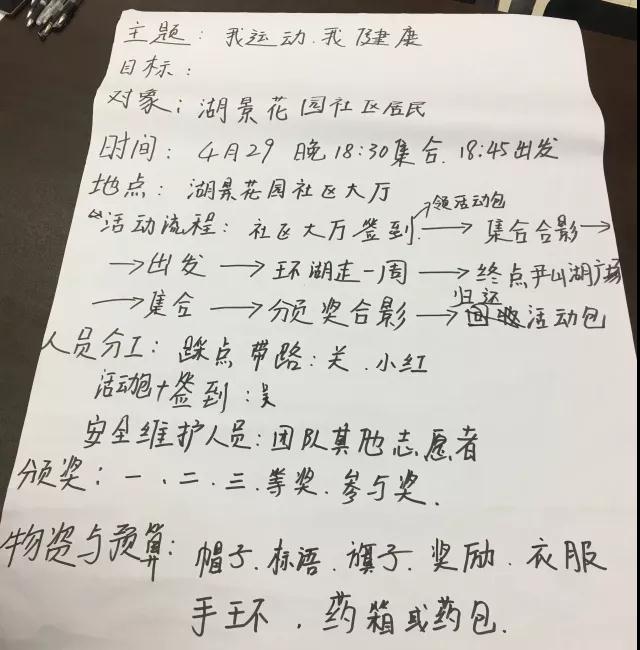 主题：我运动.我健康
目标：
对象：湖景花园社区居民
时间：4月29 晚18:30集合.18:45出发
地点：湖景花园社区大厅
领活动包
活动流程：社区大厅签到→集合合影→
→出发→环湖走一周→终点尹山湖广场
归还
→集合→颁奖合影→活动包
人员分工：踩点带路：关.小红
活动包+签到：吴
安全维护人员：团队其他志愿者
颁奖：一、二、三.等奖.参与奖.
物资与预算：帽子.标语.旗子.奖励.衣服
手环.药箱或药包.